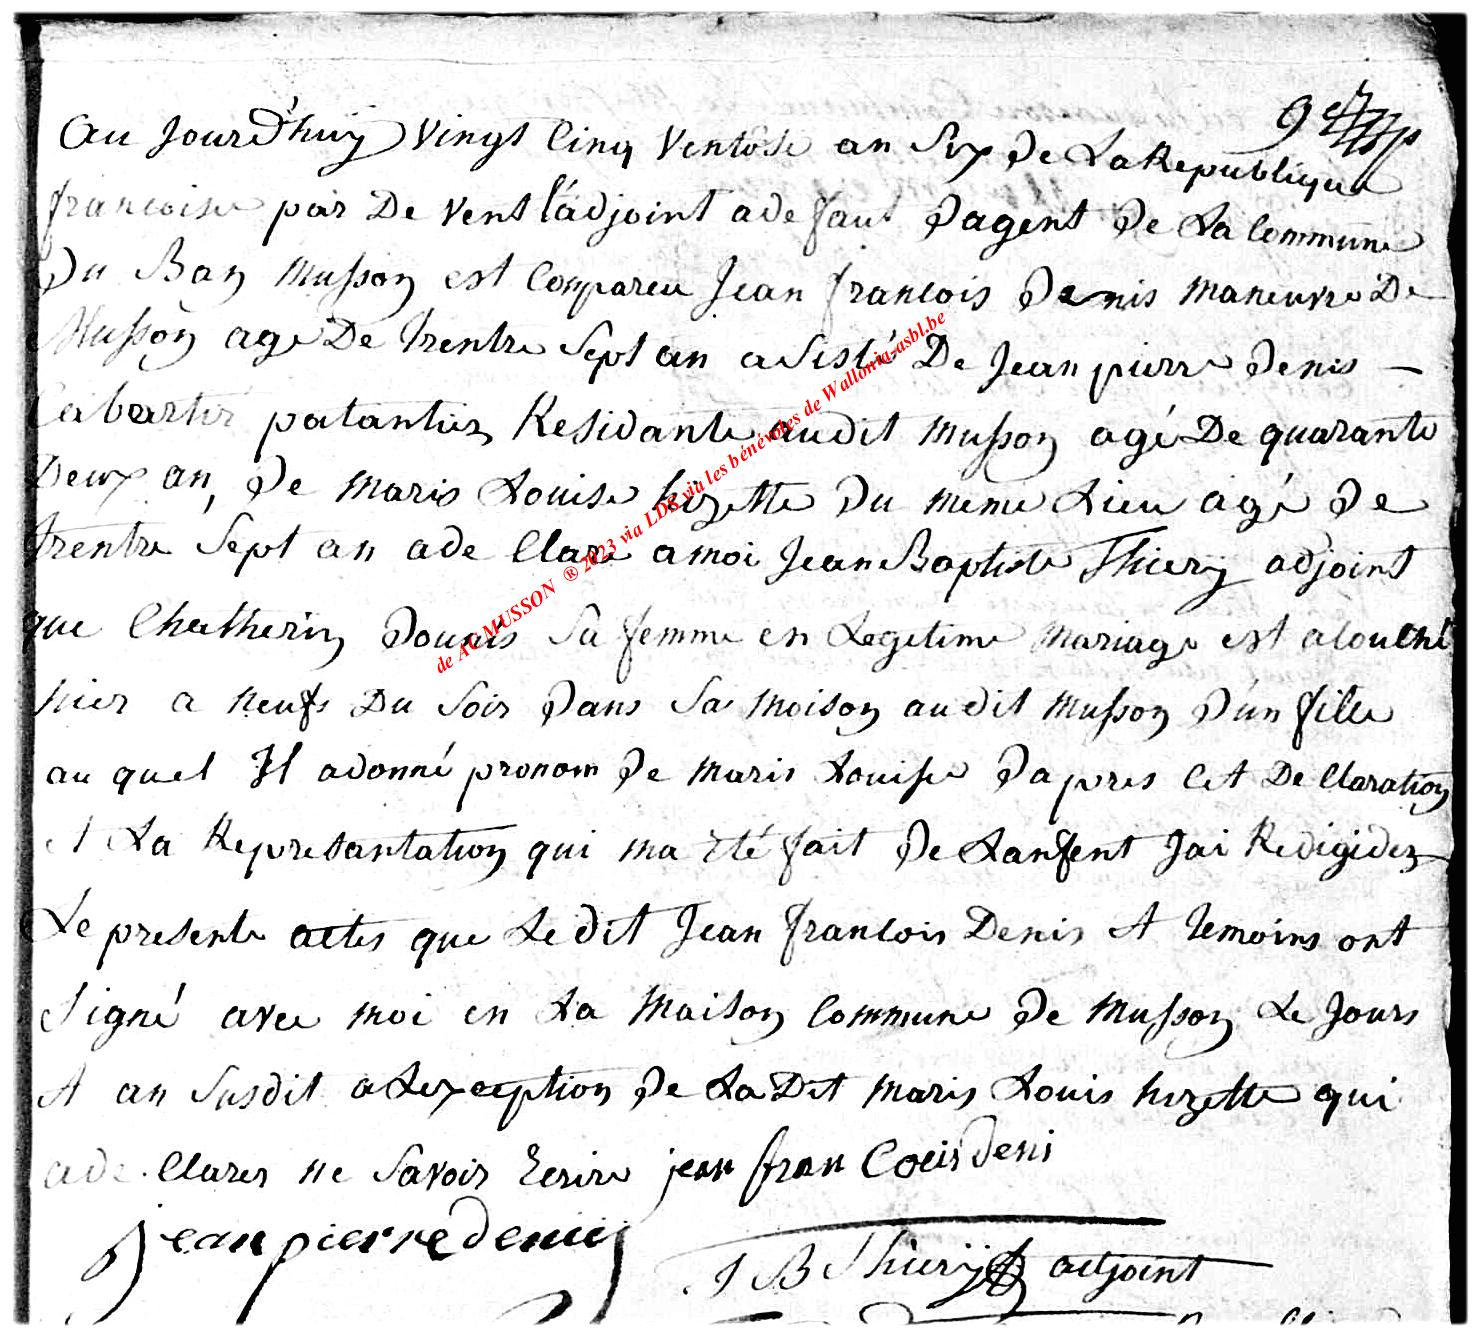 au jourd'huy vingt cinq ventôse an six de La Republique
francoise par De vent l'adjoint a de faut d'agent de La Commune
Du Ban Musson est Compareu Jean francois Denis maneuvre De
Musson agé De trentre sept an a sisté De Jean pierre Denis —
Cabartir patantier Residante audit Musson agé De quarante
Deux an, De Maris Louise hizette Du meme Lieu agé de
trentre sept an a de Clare a moi Jean Baptiste Thiery adjoint
que Chatherin sa femme en Legetime mariage est a Couché
hier a neufs Du soir dans sa moison audit Musson d'un fille
au quel Il a donné pronom de Maris Louise dapres Cet De Claration
et La Representation qui ma été fait de Lanfent Jai Redigidez
Le presente actes que Le dit Jean francois Denis et temoins ont
signé avec moi en La Maison Commune de Musson Le Jours
et an susdit a Lexception de La Dit Maris Louis hizette qui
a de Clarer ne savoir Ecrire jean fran Coeis Denis
jean pierre denis
J B Thiery adjoint
de AC MUSSON ® 2023 via LDS via les bénévoles de Wallonia-asbl.be